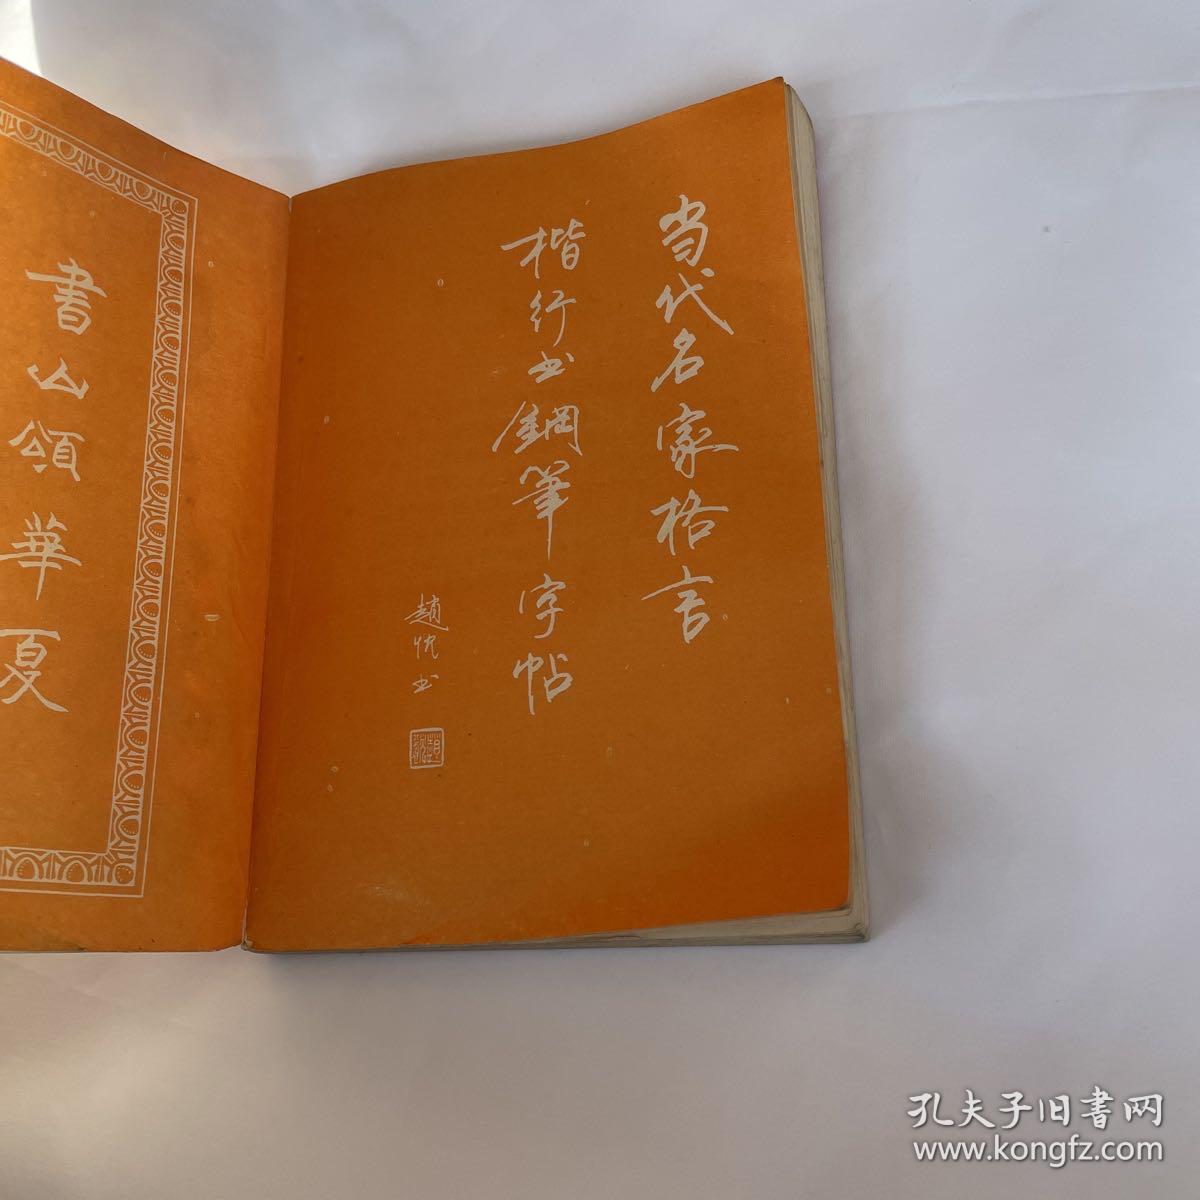 当代名家格言
楷行书鋼筆字帖
趙忱书
書山頌華夏
孔夫子旧書网
www.kongfz.com